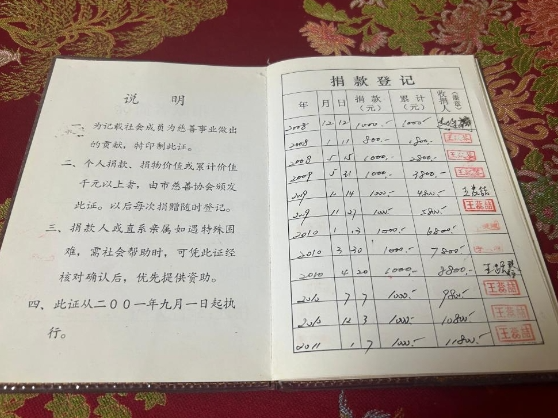 说 明
一、为记载社会成员为慈善事业做出
的贡献，特印制此证。
二、个人捐款、捐物价值或累计价值
千元以上者，由市慈善协会颁发
此证。以后每次捐赠随时登记。
三、捐款人或直系亲属如遇特殊困
难，需社会帮助时，可凭此证经
核对确认后，优先提供资助。
四、此证从二〇〇一年九月一日起执
行。
捐 款 登 记
年 月 日 捐款(元) 累计(元) 收捐人(盖章)
2008 12 12 1000.- 1000.-
2008 1 11 800.- 1800.-
2008 5 15 1000.- 2800.-
2008 5 21 1000.- 3800.-
2009 14 1000.- 4800.-
2009 11 1000.- 5800.-
2010 1 13 1000.- 6800.-
2010 3 30 1000.- 7800.-
2010 4 20 1000.- 8800.-
2010 7 7 1000.- 9800.-
2010 12 3 1000.- 10800.-
2011 1 7 1000.- 11800.-